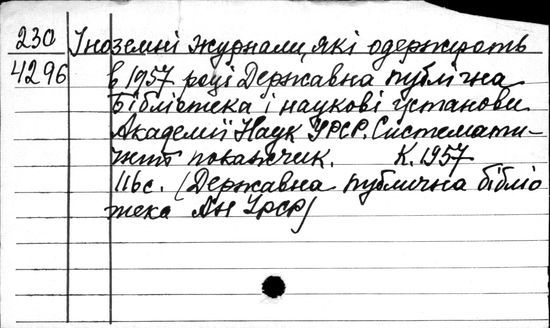 23а Іноземні журнали, які одержують
4296 в 1957 році Державна публічна
бібліотека і наукові установи
Академії Наук УРСР. Системати-
чний покажчик. К. 1957
116 с. (Державна публична бібліо
тека АН УРСР)